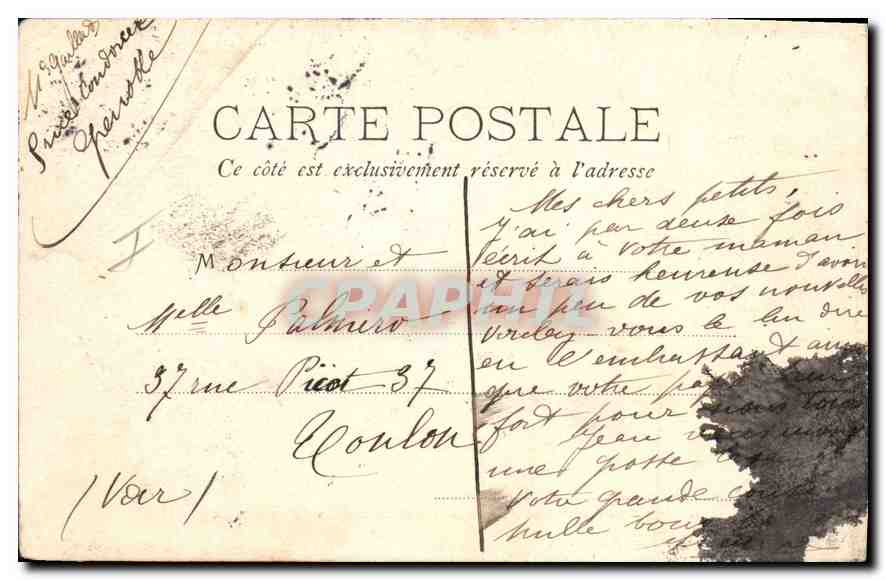 Mlle Gaillard
5 rue Condorcet
Grenoble
CARTE POSTALE
Ce côté est exclusivement réservé à l'adresse
Monsieur et
Melle Palmiero
37 rue Picot 37
Toulon
(Var)
CPAPHIL
Mes chers petits,
J'ai par deux fois
écrit à votre maman
et serais heureuse d'avoir
un peu de vos nouvelles
Voulez-vous le lui dire
en l'embrassant ainsi
que votre papa bien
fort pour nous tous
Jean vous
une grosse
Votre grande
mille